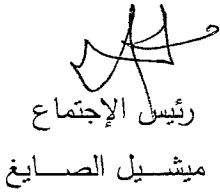 رئيس الإجتماع
ميشيل الصايغ